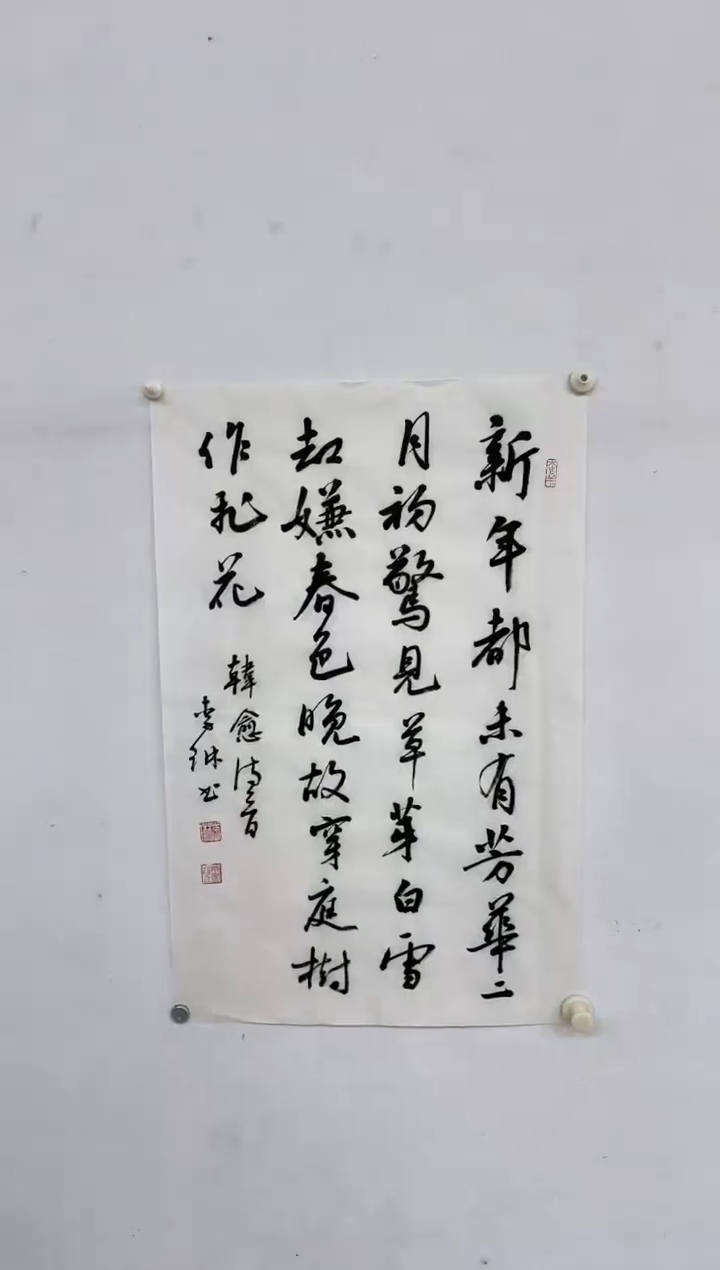 新年都未有芳華二
月初驚見草芽白雪
却嫌春色晚故穿庭樹
作飛花
韓愈詩一首
李琳书